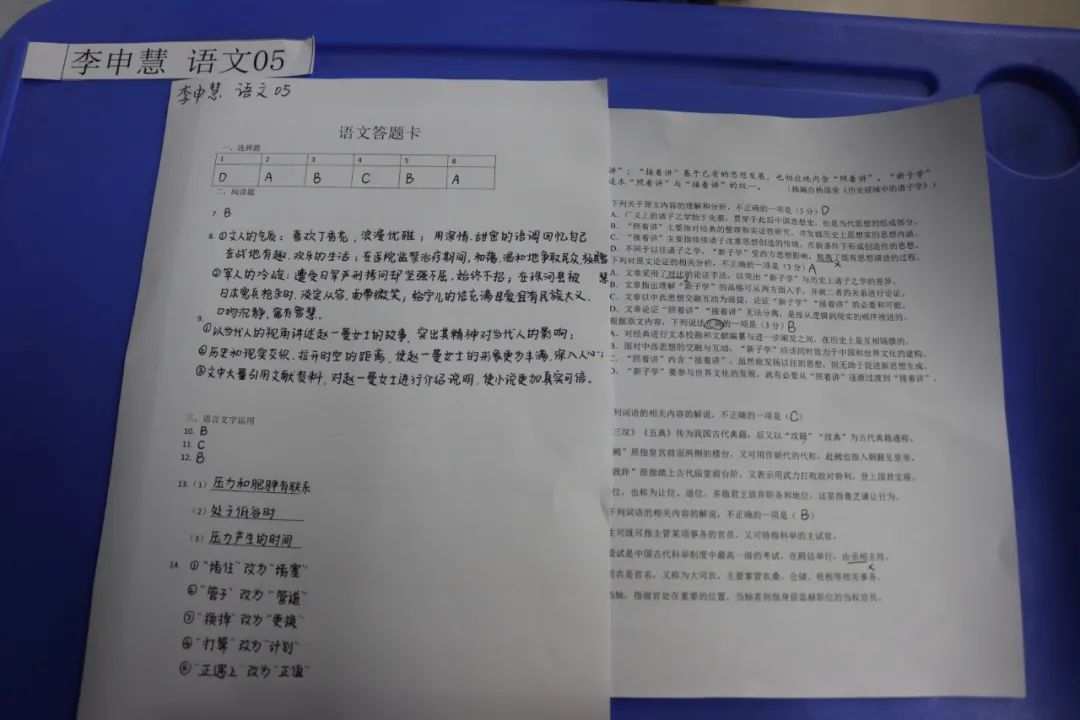 李申慧 语文05
李申慧 语文05
语文答题卡
一、选择题
1 2 3 4 5 6
D A B C B A
二、阅读题
7. B
8. ①文人的气质：喜欢丁香花，浪漫优雅；用深情、甜蜜的语调回忆自己
在战地有趣、欢乐的生活；在医院监禁治疗期间，和蔼、温和地争取民众，
②军人的冷峻：遭受日军严刑拷问却坚强不屈，始终不招；在珠河县被
日本宪兵枪杀时，淡定从容，面带微笑；给宁儿的信充满母爱且有民族大义，
口吻沉静，富有智慧。
9.
①以当代人的视角讲述赵一曼女士的故事，突出其精神对当代人的影响；
②历史和现实交织，拉开时空的距离，使赵一曼女士的形象更为丰满，深入人心；
③文中大量引用文献资料，对赵一曼女士进行介绍说明，使小说更加真实可信。
三、语言文字运用
10. B
11. C
12. B
13. (1) 压力和肥胖有联系
(2) 处于低谷时
(3) 压力产生的时间
14 ①"堵住"改为"堵塞"
②"管子"改为"管道"
③"换掉"改为"更换"
④"打算"改为"计划"
⑤"正遇上"改为"正值"
讲"；"接着讲"基于已有的思想发展，也相应地内含"照着讲"。"新子学"
"照着讲"与"接着讲"的统一。 （摘编自杨国荣《历史视域中的诸子学》）
下列关于原文内容的理解和分析，不正确的一项是（3分）D
A. 广义上的诸子之学始于先秦，贯穿于此后中国思想史，也是当代思想的组成部分。
B. "照着讲"主要指对经典的整理和实证性研究，并发掘历史上思想家的思想内涵。
C. "接着讲"主要指接续诸子注重思想创造的传统，在新条件下形成创造性的思想。
D. 不同于以往诸子之学，"新子学"受西方思想影响，脱离了既有思想演进的过程。
下列对原文论证的相关分析，不正确的一项是（3分）A
A. 文章采用了对比的论证手法，以突出"新子学"与历史上诸子之学的差异。
B. 文章指出理解"新子学"的品格可从两方面入手，并就二者的关系进行论证。
C. 文章以中西思想交融互动为前提，论证"新子学""接着讲"的必要和可能。
D. 文章论证"照着讲""接着讲"无法分离，是按从逻辑到现实的顺序推进的。
根据原文内容，下列说法正确的一项是（3分）B
A. 对经典进行文本校勘和文献编纂与进一步阐发之间，在历史上是互相隔膜的。
B. 面对中西思想的交融与互动，"新子学"应该同时致力于中国和世界文化的建构。
C. "照着讲"内含"接着讲"，虽然能发扬以往的思想，但无助于促进新思想生成。
D. "新子学"要参与世界文化的发展，就有必要从"照着讲"逐渐过渡到"接着讲"。
列词语的相关内容的解说，不正确的一项是（C）
三坟》《五典》传为我国古代典籍，后又以"坟籍""坟典"为古代典籍通称。
阙"原指皇宫前面两侧的楼台，又可用作朝代的代称，赴阙也指入朝觐见皇帝。
践阼"原指踏上古代庙堂前台阶，又表示用武力打败敌对势利，登上国君宝座。
位，也称为让位、逊位，多指君王放弃职务和地位，这里指鲁芝谦让行为。
下列词语的相关内容的解说，不正确的一项是（B）
主司既可指主管某项事务的官员，又可特指科举的主试官。
殿试是中国古代科举制度中最高一级的考试，在殿廷举行，由丞相主持。
司农是官名，又称为大司农，主要掌管农桑、仓储、租税等相关事务。
当轴，指做官处在重要的位置，当轴者则指身居显赫职位的当权官员。